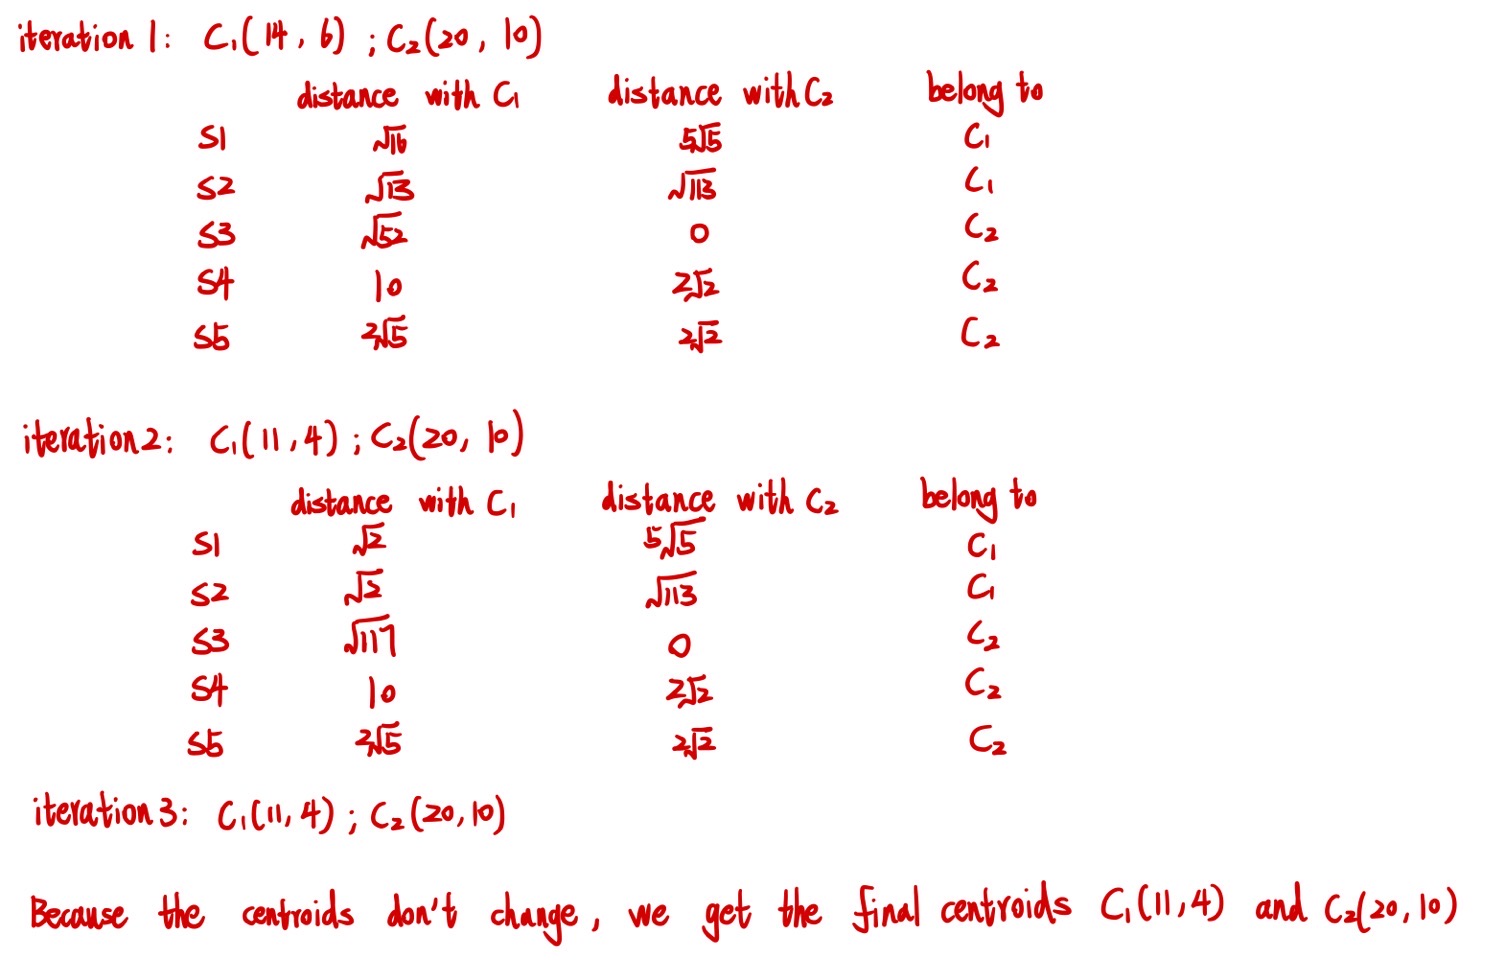 iteration 1: C₁(14, 6) ; C₂(20, 10)
distance with C₁ distance with C₂ belong to
S1 √16 5√5 C₁
S2 √13 √113 C₁
S3 √52 0 C₂
S4 10 2√2 C₂
S5 2√5 2√2 C₂
iteration 2: C₁(11, 4) ; C₂(20, 10)
distance with C₁ distance with C₂ belong to
S1 √2 5√5 C₁
S2 √2 √113 C₁
S3 √117 0 C₂
S4 10 2√2 C₂
S5 2√5 2√2 C₂
iteration 3: C₁(11, 4) ; C₂(20, 10)
Because the centroids don't change, we get the final centroids C₁(11, 4) and C₂(20, 10)